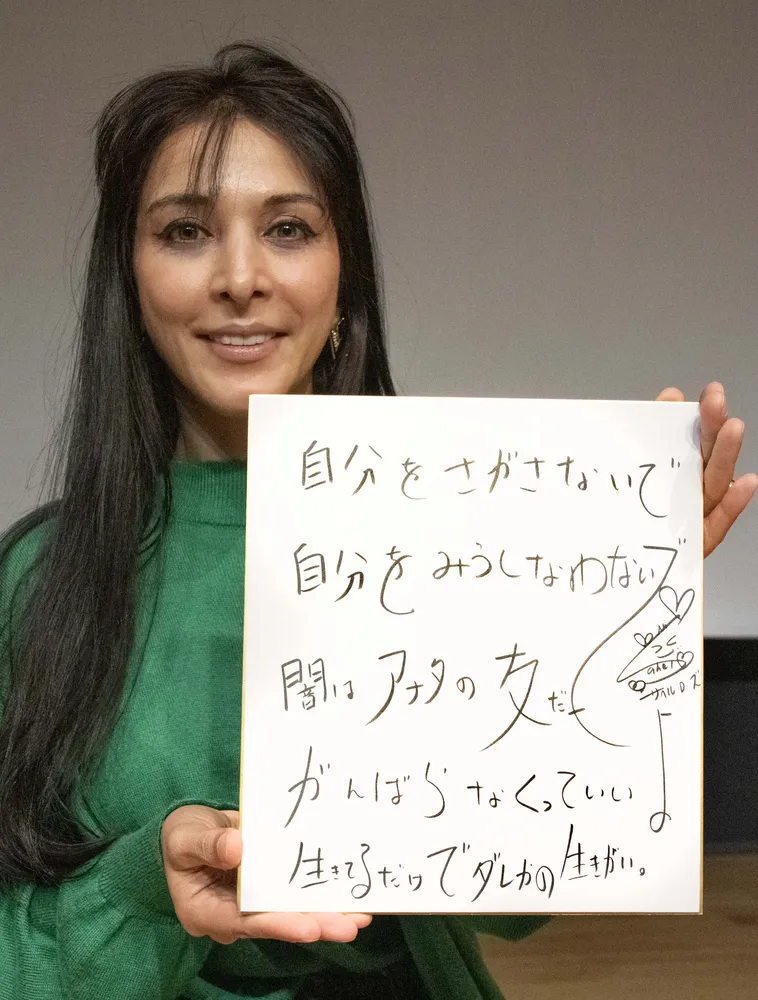 自分をさがさないで
自分をみうしなわないで
闇はアナタの友だち
がんばらなくっていいよ
生きてるだけでダレカの生きがい。
サヘル ローズ